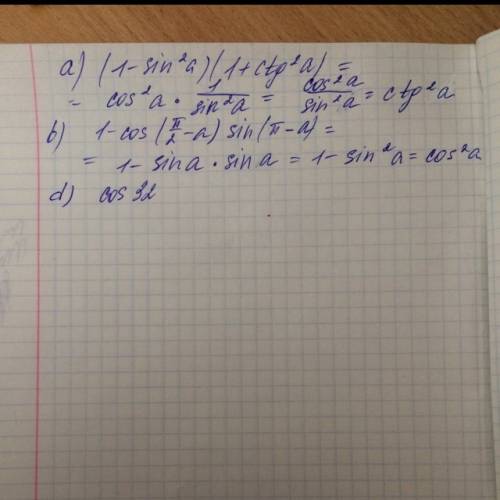 a) (1-sin²a)(1+ctg²a) =
= cos²a · 1/sin²a = cos²a/sin²a = ctg²a
b) 1-cos(π/2-a) sin(π-a) =
= 1-sina · sina = 1-sin²a = cos²a
d) cos 32